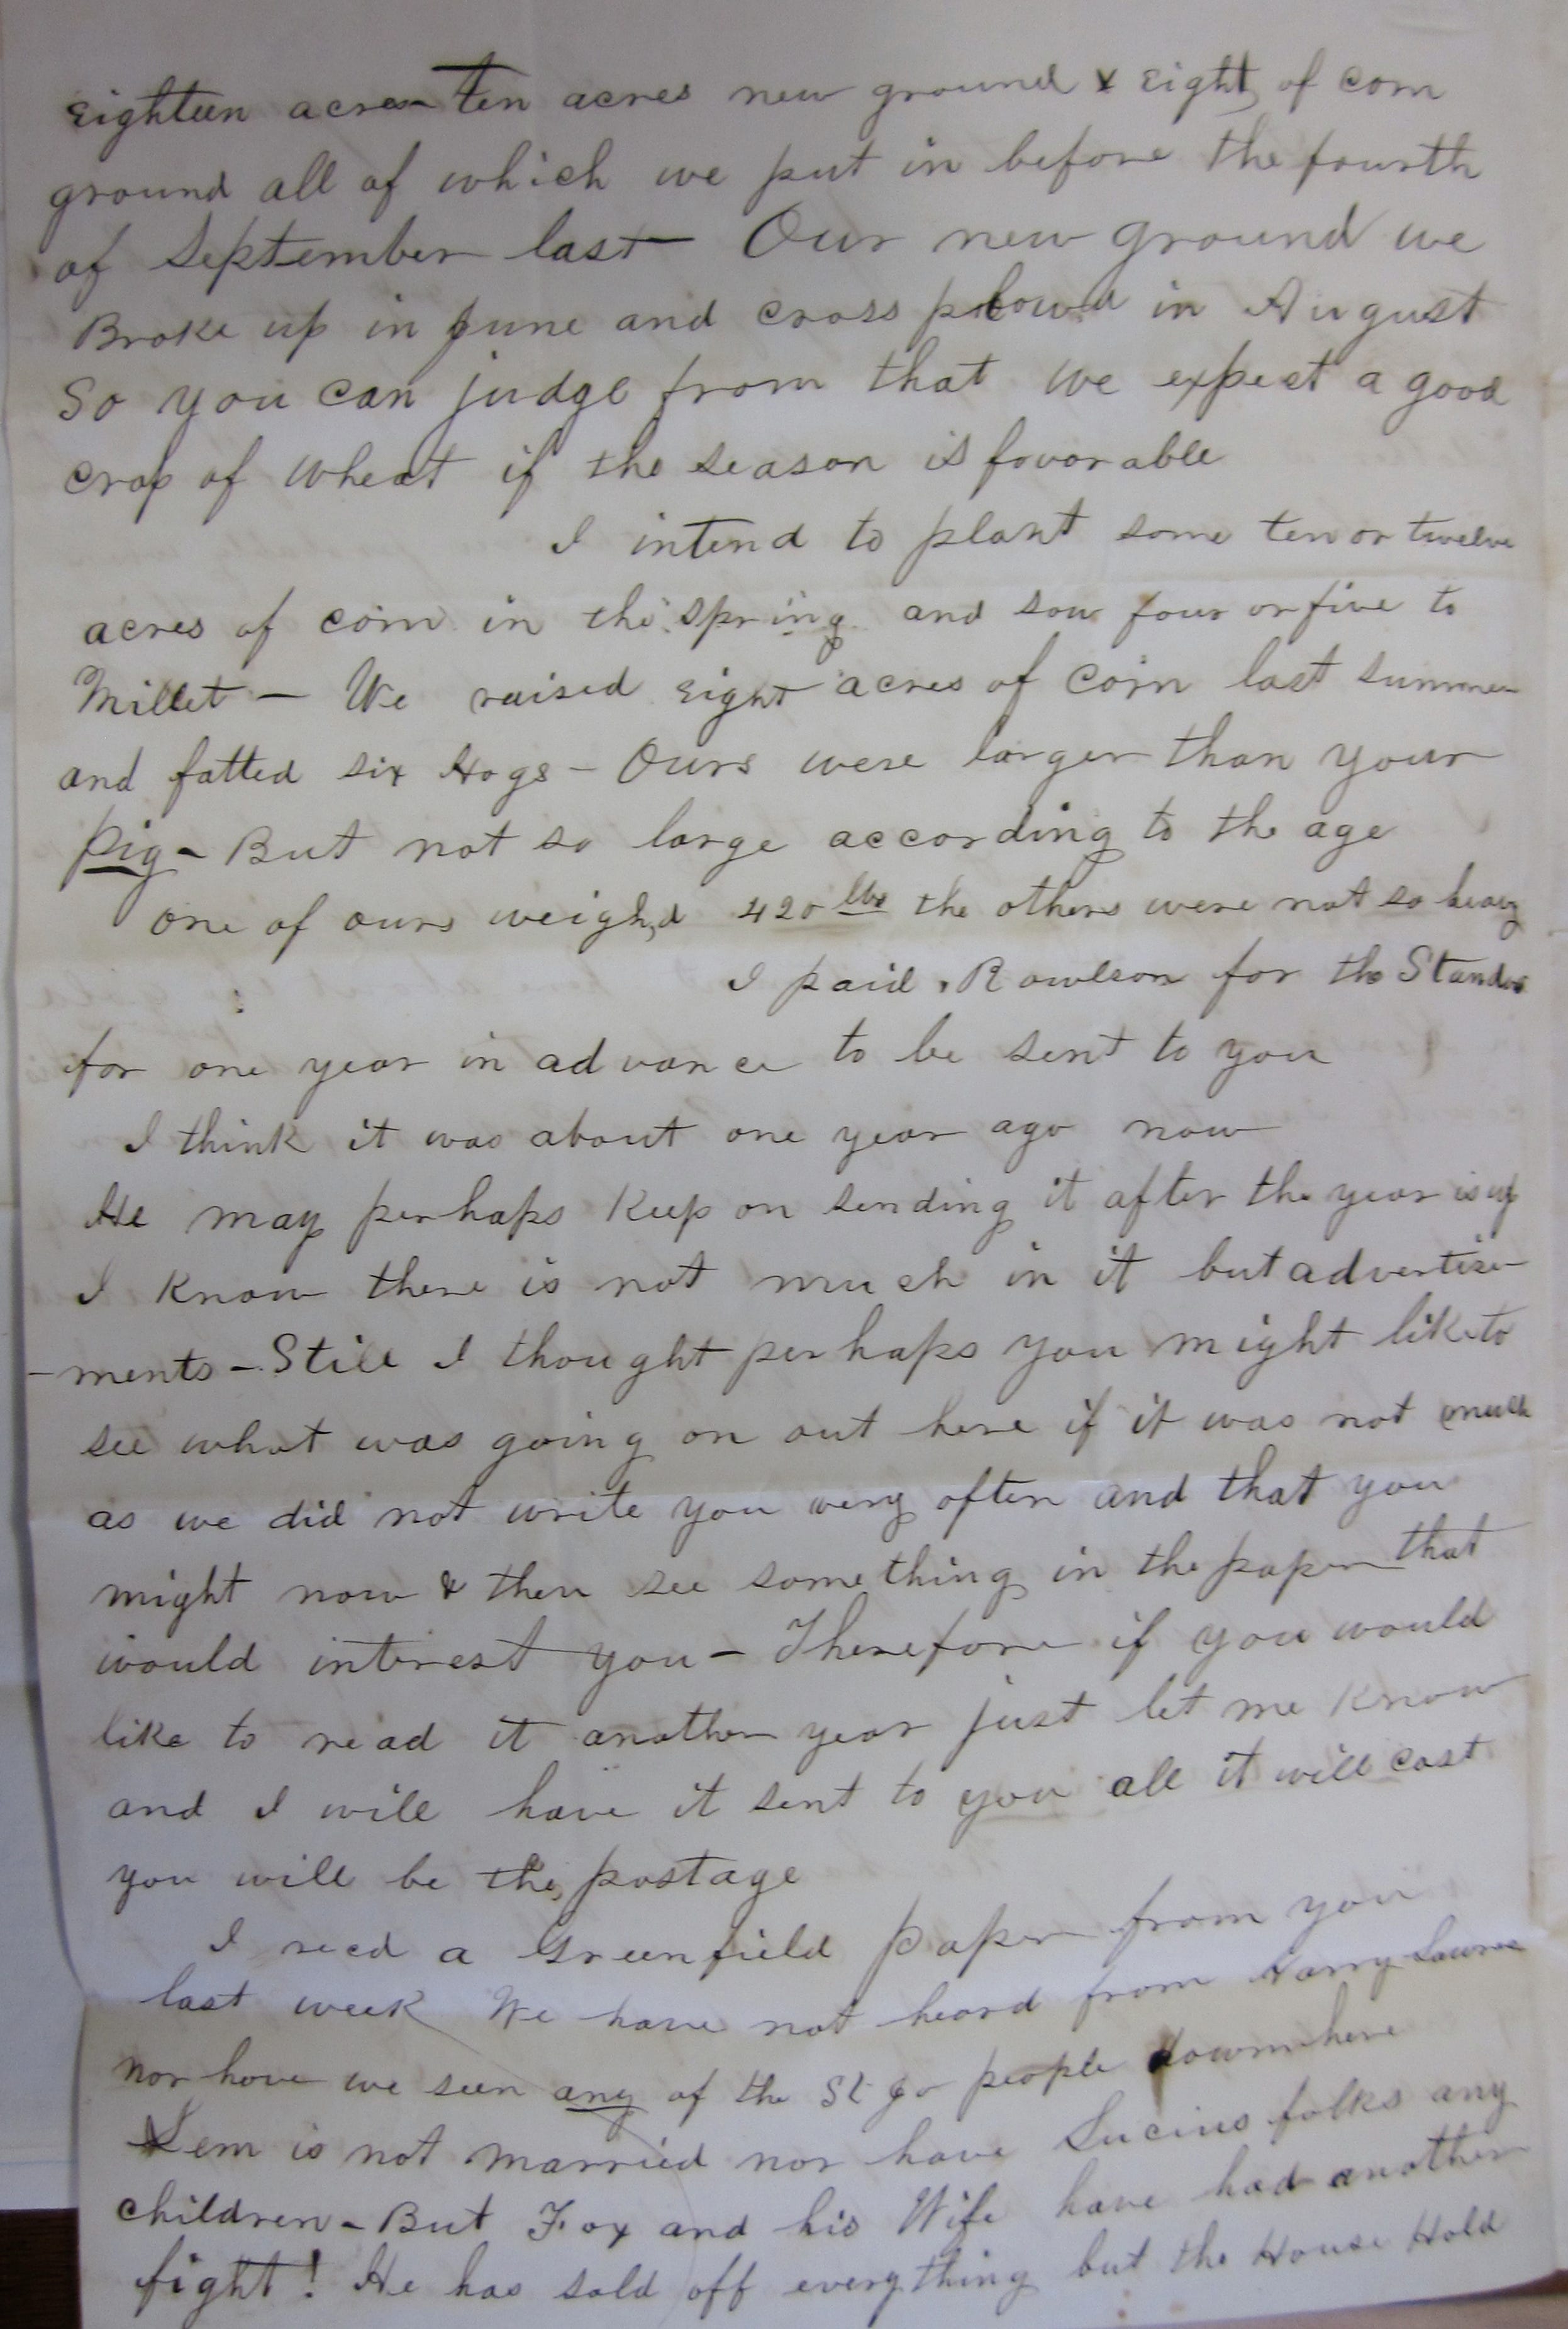 Eighteen acres - Ten acres new ground & Eight of corn
ground all of which we put in before the fourth
of September last - Our new ground we
Broke up in June and cross plowed in August
So you can judge from that we expect a good
crop of wheat if the season is favorable
I intend to plant some ten or twelve
acres of corn in the spring and sow four or five to
Millet - We raised Eight acres of corn last summer
and fatted six Hogs - Ours were larger than your
pig - But not so large according to the age
one of ours weighd 420 lbs the others were not so heavy
I paid Rowlson for the
for one year in advance to be sent to you
I think it was about one year ago now
He may perhaps Keep on sending it after the year is up
I Know there is not much in it but advertise
-ments - Still I thought perhaps you might like to
see what was going on out here if it was not much
as we did not write you very often and that you
might now & then see something in the paper that
would interest you - Therefore if you would
like to read it another year just let me Know
and I will have it sent to you all it will cost
you will be the postage
I recd a Greenfield paper from you
last week We have not heard from Harry
nor have we seen any of the St Jo people
Lem is not married nor have Lucius folks any
children - But Fox and his Wife have had another
fight! He has sold off everything but the House Hold